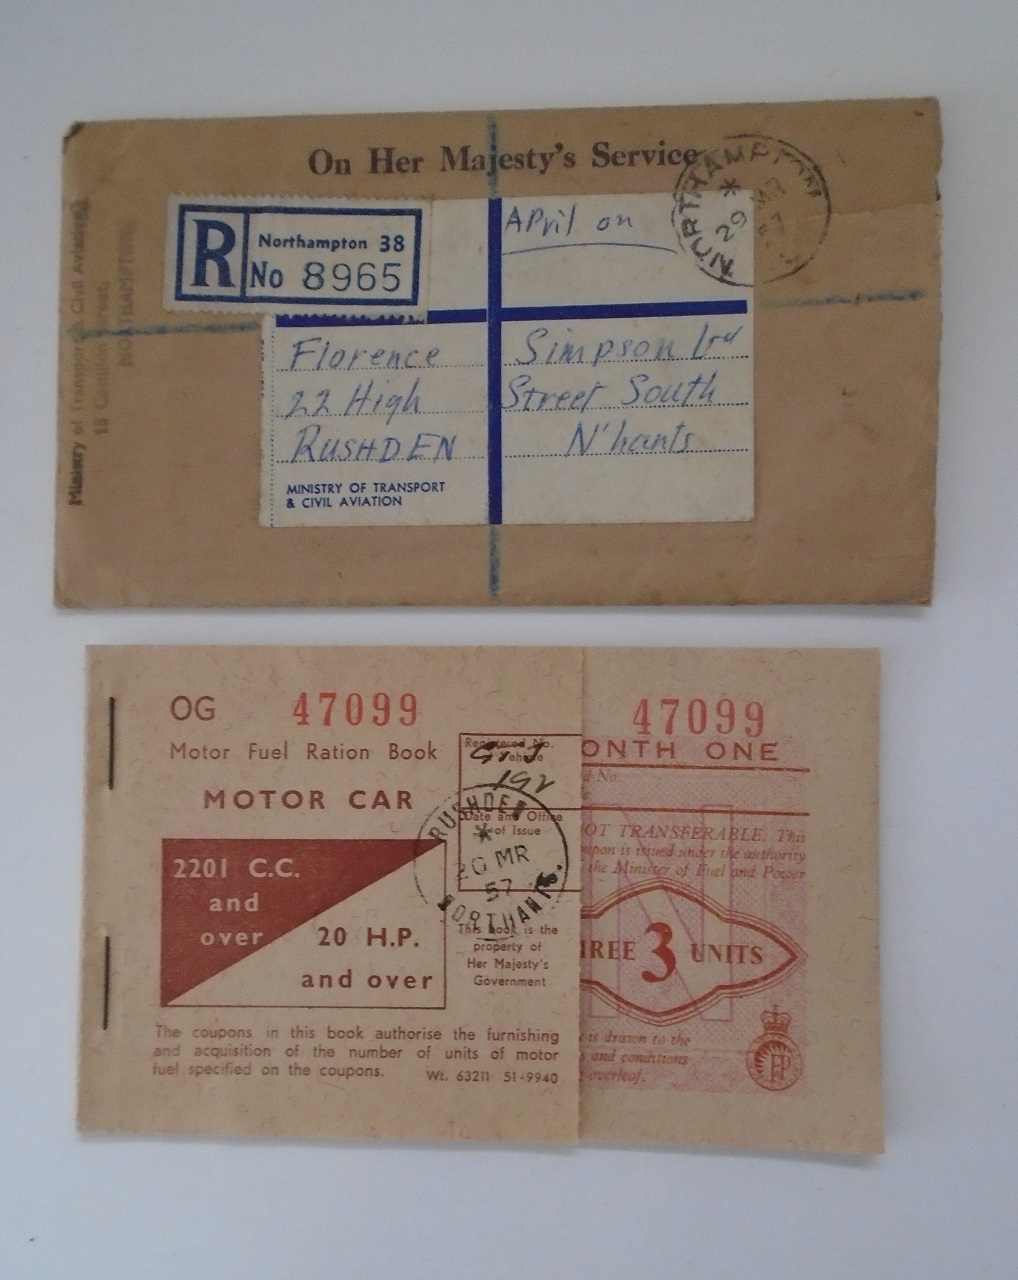 On Her Majesty's Service
NORTHAMPTON
29 MR
R
Northampton 38
No 8965
April on
Florence Simpson Ltd
22 High Street South
RUSHDEN N'hants
MINISTRY OF TRANSPORT
& CIVIL AVIATION
Ministry of Transport & Civil Aviation
NORTHAMPTON
OG 47099
Motor Fuel Ration Book
MOTOR CAR
2201 C.C.
and
over
20 H.P.
and over
Registered No.
Date and Office
of Issue
RUSHDEN
20 MR
57
NORTHANTS.
This book is the
property of
Her Majesty's
Government
The coupons in this book authorise the furnishing
and acquisition of the number of units of motor
fuel specified on the coupons. Wt. 63211 51-9940
47099
ONTH ONE
d No.
OT TRANSFERABLE. This
upon is issued under the authority
the Minister of Fuel and Power
REE 3 UNITS
is drawn to the
s and conditions
overleaf.